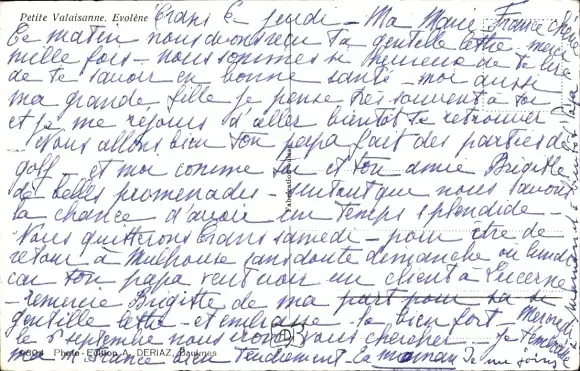 Petite Valaisanne. Evolène
Crans ce jeudi – Ma Marie France chérie
Ce matin nous avons reçu ta gentille lettre – merci
mille fois – nous sommes si heureux de te lire
de te savoir en bonne santé – moi aussi
ma grande fille je pense très souvent à toi
et je me réjouis d'aller bientôt te retrouver
– Nous allons bien ton papa fait des parties de
golf et moi comme toi et ton amie Brigitte
de belles promenades – surtout que nous avons
la chance d'avoir un temps splendide –
Nous quitterons Crans samedi – pour être de
retour à Mulhouse sans doute dimanche ou lundi
car ton papa veut voir un client à Lucerne
– remercie Brigitte de ma
gentille lettre – et embrasse la bien fort – Mercredi
le septembre nous irons vous chercher – je t'embrasse
ma France tendrement ta maman
Photo-Edition A. DERIAZ, Baulmes